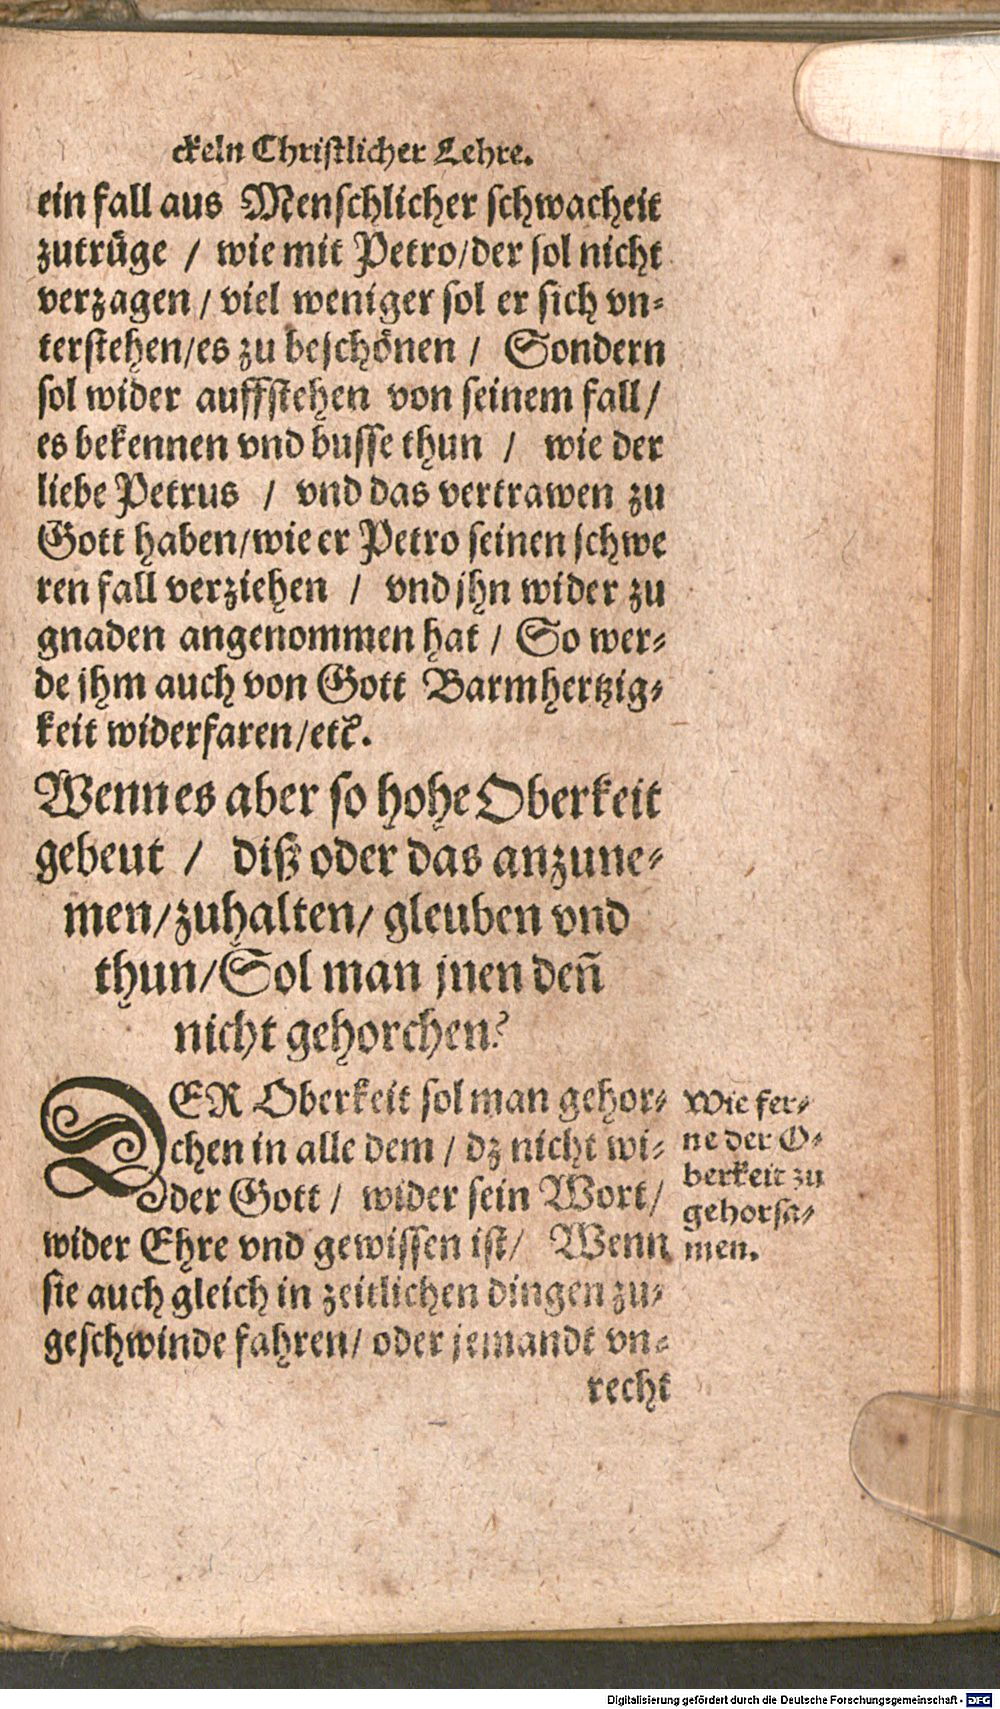 ckeln Christlicher Lehre.
ein fall aus Menschlicher schwacheit
zutrüge / wie mit Petro/der sol nicht
verzagen / viel weniger sol er sich vn-
terstehen/es zu beschönen / Sondern
sol wider auffstehen von seinem fall/
es bekennen vnd busse thun / wie der
liebe Petrus / vnd das vertrawen zu
Gott haben/wie er Petro seinen schwe
ren fall verziehen / vnd jhn wider zu
gnaden angenommen hat / So wer-
de jhm auch von Gott Barmhertzig-
keit widerfaren/etc̃.
Wenn es aber so hohe Oberkeit
gebeut / diß oder das anzune-
men/zuhalten/ gleuben vnd
thun/Sol man jnen deñ
nicht gehorchen?
DER Oberkeit sol man gehor-
chen in alle dem / dz nicht wi-
der Gott / wider sein Wort/
wider Ehre vnd gewissen ist/ Wenn
sie auch gleich in zeitlichen dingen zu-
geschwinde fahren/ oder jemandt vn-
recht
Wie fer-
ne der O-
berkeit zu
gehorsa-
men.
Digitalisierung gefördert durch die Deutsche Forschungsgemeinschaft - DFG